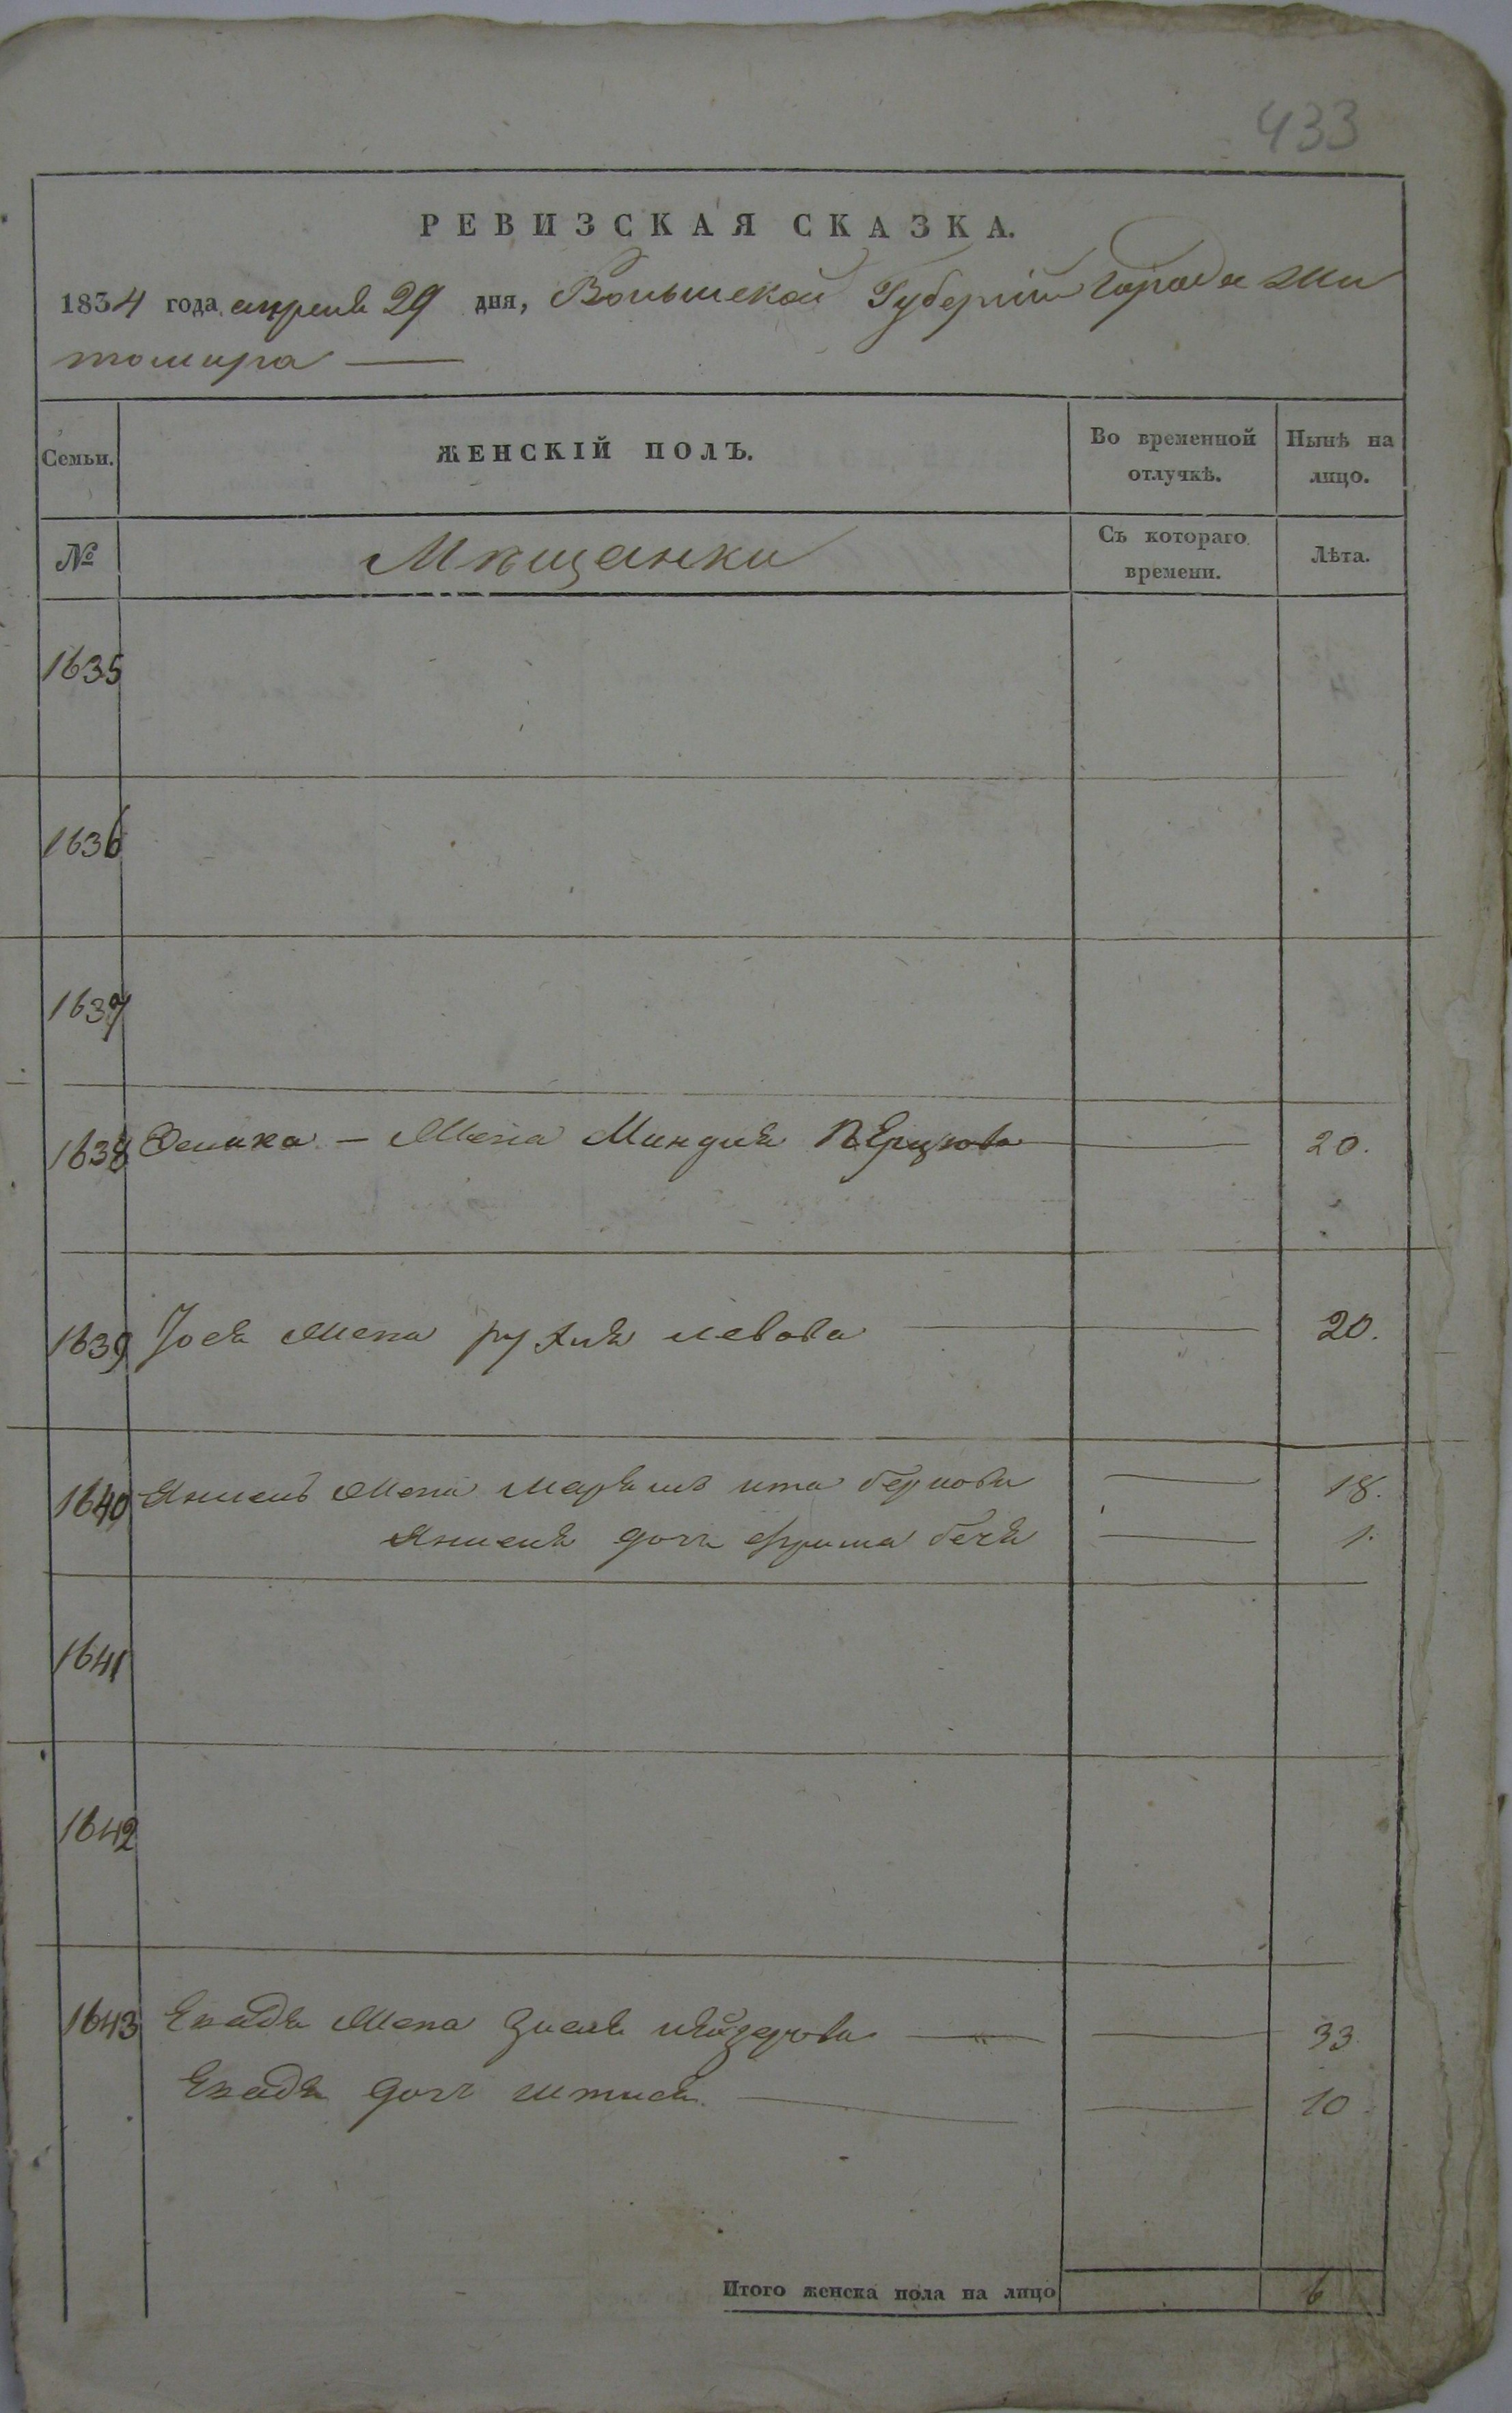 433
РЕВИЗСКАЯ СКАЗКА.
1834 года апреля 29 дня, Волынской Губерніи города Жи
томира —
Семьи. ЖЕНСКІЙ ПОЛЪ. Во временной отлучкѣ. Нынѣ на лицо.
№ Мѣщанки Съ котораго времени. Лѣта.
1635
1636
1637
1638 жена Миндля — 20.
1639 Іося жена рухля левова — 20.
1640 жена ита беркова — 18.
дочь фрима бейя — 1.
1641
1642
1643 жена — 33
дочь — 10
Итого женска пола на лицо 6